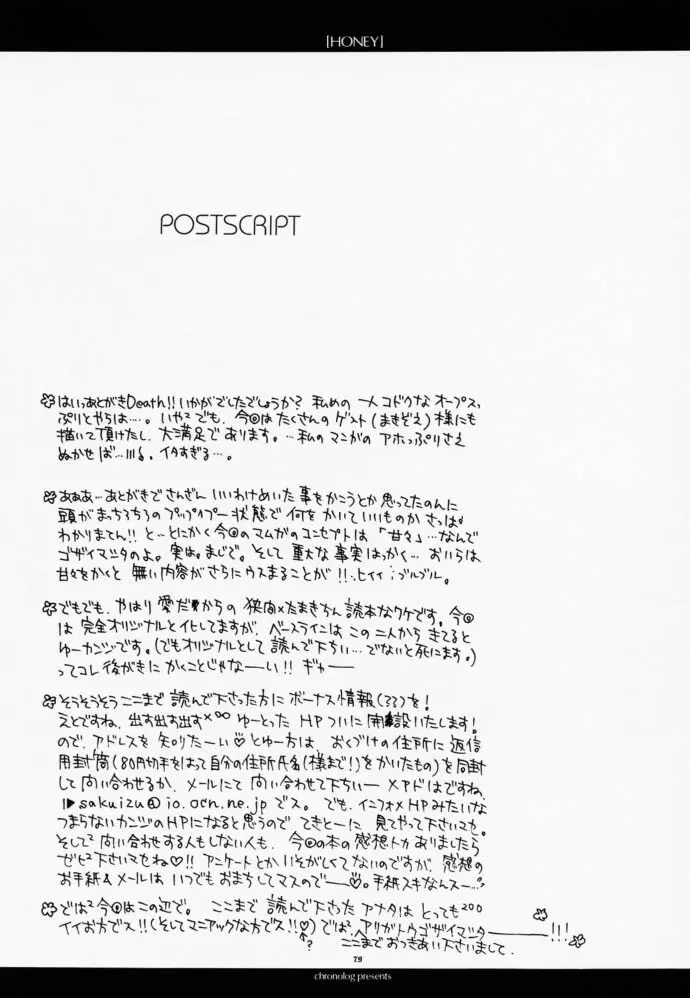 [HONEY]
POSTSCRIPT
はいっあとがきDeath!! いかがでしたでしょうか? 私めの 一人コドクなオープスっ
ぷりとやらは…。いや² でも、今回はたくさんのゲスト(まきぞえ)様にも
描いて頂けたし、大満足であります。…私のマンガの アホっぷりさえ
ぬかせば…、イタすぎる…。
あぁあ…あとがきでさんざん いいわけめいた 事をかこうとか思ってたのんに
頭がまっちろちろのプップイプー状態で何をかいていいものか さっぱ
わかりまてん!! と…とにかく今回のマムガのコンセプトは「甘々」…なんで
ゴザイマツタのよ。実は。まじで。そして 重大な 事実はっかく… おいらは
甘々をかくと 無い内容が さらにウスまることが!! ヒイィ ブルブル。
でもでも、やはり 愛だからの 狭向×たまきちん 読本なワケです。今回
は 完全オリジナルと化してますが、ベースラインは この二人から きてると
ゆーカンジです。(でもオリジナルとして 読んで下ちい…でないと死にます。)
ってコレ 後がきに かくことじゃなーい!! ギャー
そうそうそう ここまで 読んで下さった方に ボーナス情報(??)を!
えとですね、出す出す出す×∞ ゆーとった HP ついに 開設いたします!
ので、アドレスを 知りたーい♡とゆー方は、おくづけの住所に 返信
用封筒(80円切手をはって自分の住所氏名(様まで!)をかいたもの)を同封
して 問い合わせるか、メールにて 問い合わせて下ちいー メアドはですね、
sakuizu@io.ocn.ne.jp でス。でも、インフォメHPみたいな
つまらないカンジのHPになると思うので てきとーに 見てやって下さいマセ。
そして² 問い合わせする人もしない人も、今回の本の感想トカ ありましたら
ゼヒ² 下さいマセね♡!! アンケートとか いそがしくてないのですが、感想の
お手紙&メールは いつでも おまちしてマスのでー♡。手紙スキなんスー…
では² 今回はこの辺で。 ここまで 読んで下さった アナタは とっても²⁰⁰
イイお方でス!!(そしてマニアックな方でス!!♡) では、アリガトウゴザイマシター!!!
?
ここまでおつきあい下さいまして。
79
chronolog presents